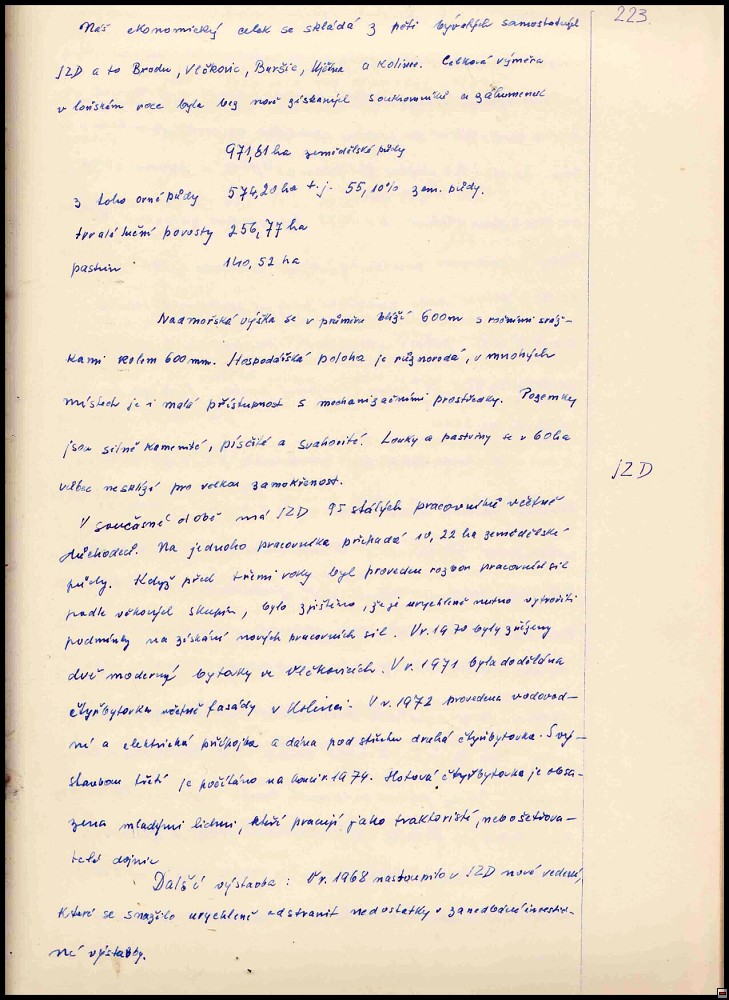 223.
Náš ekonomický celek se skládá z pěti bývalých samostatných
JZD a to Brodu, Vlčkovic, Buršic, Újezdce a Kolince. Celková výměra
v loňském roce byla bez nově získaných soukromníků a záhumenek
971,81 ha zemědělské půdy
z toho orné půdy 574,20 ha t.j. 55,10% zem. půdy.
trvalé luční porosty 256,77 ha
pastvin 140,52 ha
Nadmořská výška se v průměru blíží 600m s ročními sráž-
kami kolem 600 mm. Hospodářská poloha je různorodá, v mnohých
místech je i malá přístupnost s mechanizačními prostředky. Pozemky
jsou silně kamenité, písčité a svahovité. Louky a pastviny se v 60 ha
vůbec nesklízí pro velkou zamokřenost.
JZD
V současné době má JZD 95 stálých pracovníků včetně
důchodců. Na jednoho pracovníka přichází 10,22 ha zemědělské
půdy. Když před třemi roky byl proveden rozbor pracovních sil
podle věkových skupin, bylo zjištěno, že je urychleně nutno vytvořiti
podmínky na získání nových pracovních sil. V r. 1970 byly zřízeny
dvě moderní bytovky ve Vlčkovicích. V r. 1971 byla dodělána
čtyřbytovka včetně fasády v Kolinci. V r. 1972 provedena vodovod-
ní a elektrická přípojka a dána pod střechu druhá čtyřbytovka. S vý-
stavbou třetí je počítáno na konci r. 1974. Hotová čtyřbytovka je obsa-
zena mladými lidmi, kteří pracují jako traktoristé, nebo ošetřova-
telé dojnic
Další výstavba: V r. 1968 nastoupilo v JZD nové vedení,
které se snažilo urychleně odstranit nedostatky v zanedbané investic-
ní výstavby.